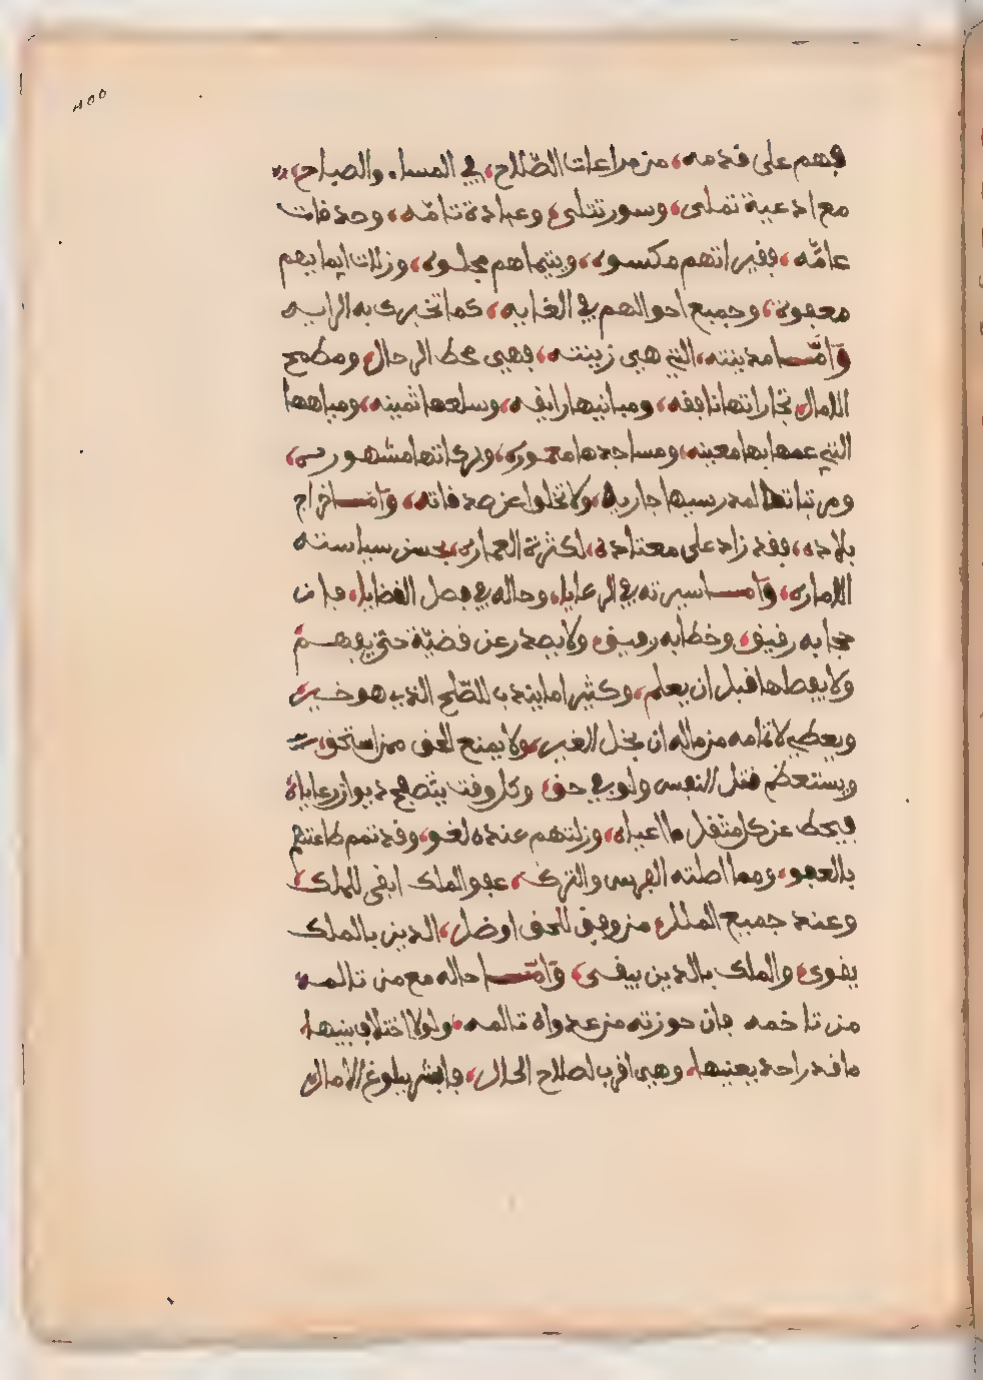 ١٥٥
فهم على قدمه، من مراعات الصّلاح، في المساء والصباح،
مع ادعية تملى، وسور تتلى، وعبادة تامّه، وصدفات
عامّه، ففيراتهم مكسوه، ويتيماهم مجلوه، وزلات
معفوة، وجميع احوالهم في الغايه، كما تخبرك به الرايه
وَامّا مدينته، التي هي زينته، فهي محط الرحال، ومطمح
الامال، تجاراتها نافقه، ومبانيها رايقه، وسلعها ثمينه، ومياهها
التي عمها بها معينه، ومساجدها معموره، وبركاتها مشهوره،
ومرتباتها لمدرسيها جاريه، ولا تخلوا عن صدقاته، وَامّا خراج
بلاده، فقد زاد على معتاده، لكثرة العماره، بحسن سياسته
الاماره، وَامّا سيرته في الرعايا، وحاله في فصل القضايا، فان
حجابه رفيق، وخطابه رفيق، ولا يصدر عن قضيّة حتى يفهم
ولا يقطها قبل ان يعلم، وكثير اما يندب للصّلح الذي هو خير،
ويعطي لاتمامه من ماله ان بخل الغير، ولا يمنع الحق ممن استحق،
ويستعظم قتل النفس ولو في حق، وكل وقت يتصفح ديوان رعاياه
فيحط عن كل مثقل ما اعياه، وزلتهم عنده لغو، وقد تمم طاعتهم
بالعفو، ومما اصلته الفرس والترك، عفو الملك ابقى للملك،
وعند جميع الملل، من وفق للحق او ضل، الدين بالملك
يقوى، والملك بالدين يبقى، وَامّا حاله مع من تالمه
من تاخمه فان حوزته من عداوه سالمه، ولولا اختلاف بنيها
ما فقد راحة بعنيها، وهي اقرب لصلاح الحال، وابشر ببلوغ الامال